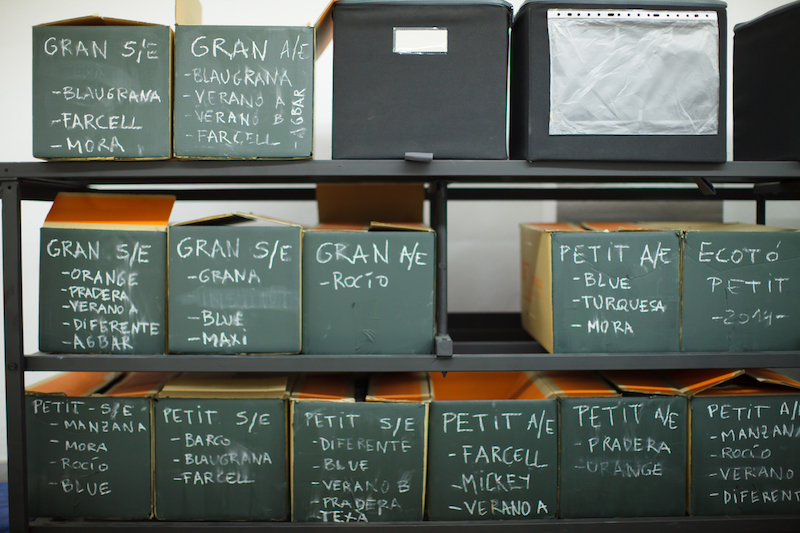 GRAN S/E
-BLAUGRANA
-FARCELL
-MORA
GRAN A/E
-BLAUGRANA
-VERANO A
-VERANO B
-FARCELL
-AGBAR
GRAN S/E
-ORANGE
-PRADERA
-VERANO A
-DIFERENTE
-AGBAR
GRAN S/E
-GRANA
-BLUE
-MAXI
GRAN A/E
-ROCÍO
PETIT A/E
-BLUE
-TURQUESA
-MORA
ECOTÓ
PETIT
-2014-
PETIT - S/E
-MANZANA
-MORA
-ROCIO
-BLUE
PETIT S/E
-BARCO
-BLAUGRANA
-FARCELL
PETIT S/E
-DIFERENTE
-BLUE
-VERANO B
-PRADERA
-TEXA
PETIT A/E
-FARCELL
-MICKEY
-VERANO A
PETIT A/E
-PRADERA
-ORANGE
PETIT A/
-MANZANA
-ROCIO
-VERANO
-DIFERENT